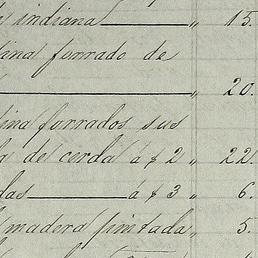 indiana " 15.
forrado de
" 20.
ina forrados sus
de cerda á $ 2 " 22.
das á $ 3 " 6.
madera pintada " 5.